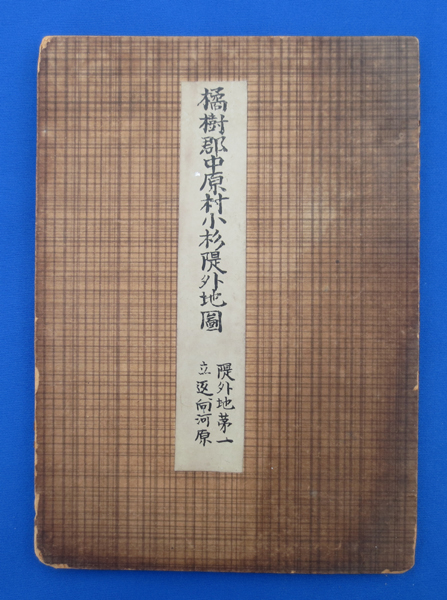 橘樹郡中原村小杉隄外地圖
隄外地第一
立返向河原